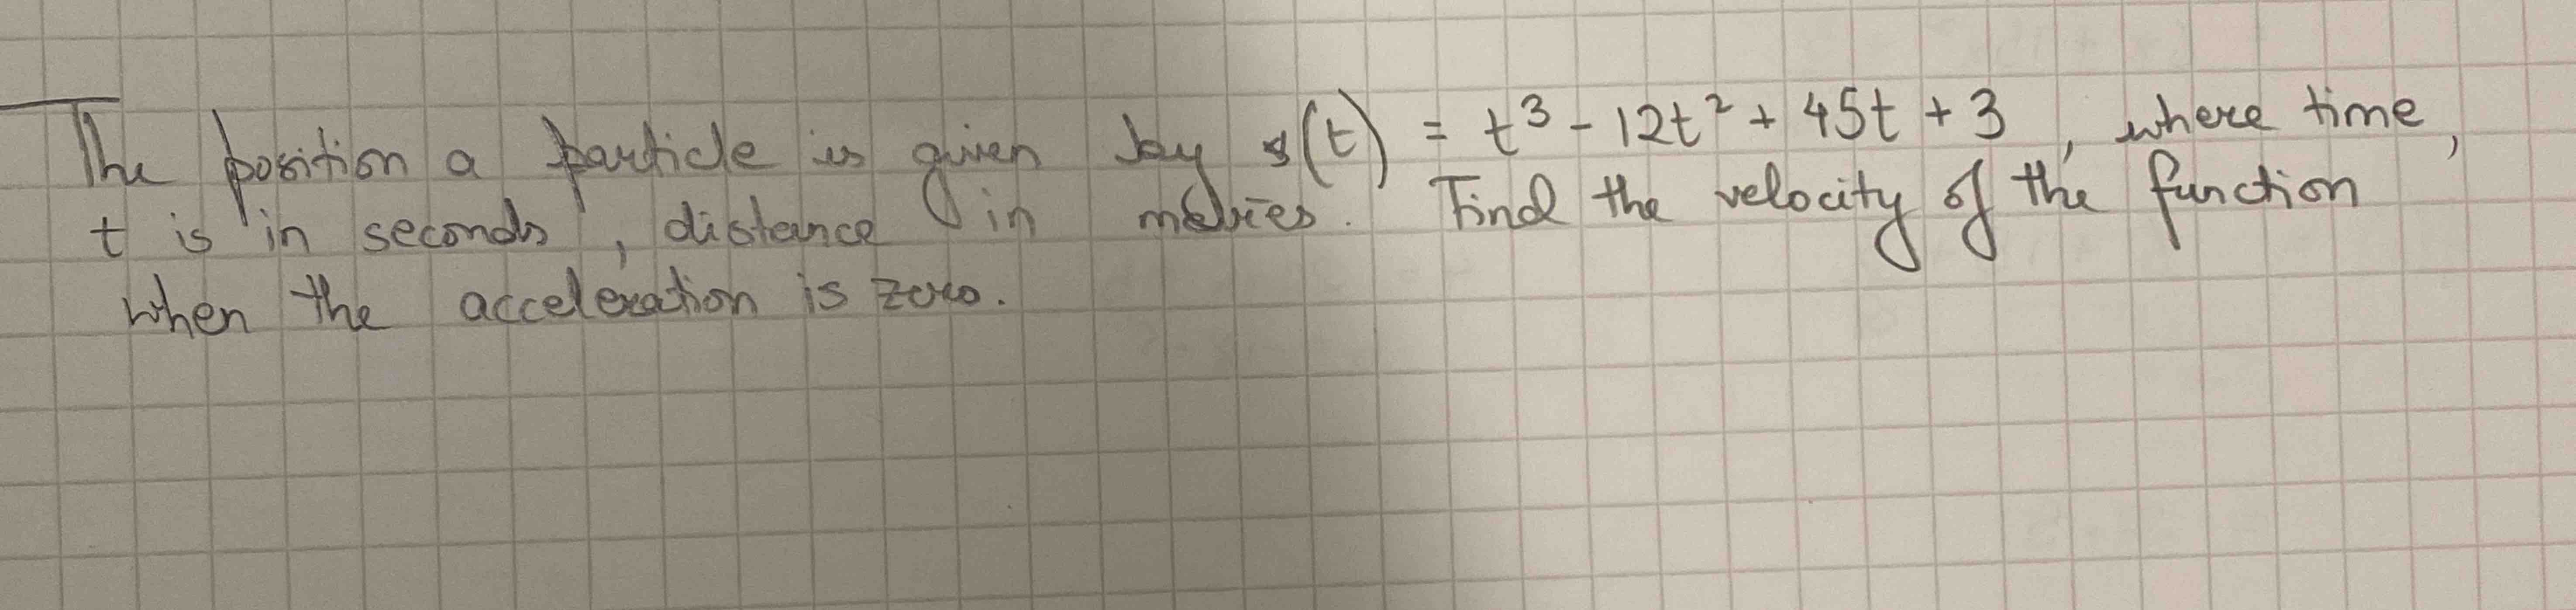 The position a particle is given by s(t) = t³ - 12t² + 45t + 3, where time,
t is in seconds, distance in metres. Find the velocity of the function
when the acceleration is zero.